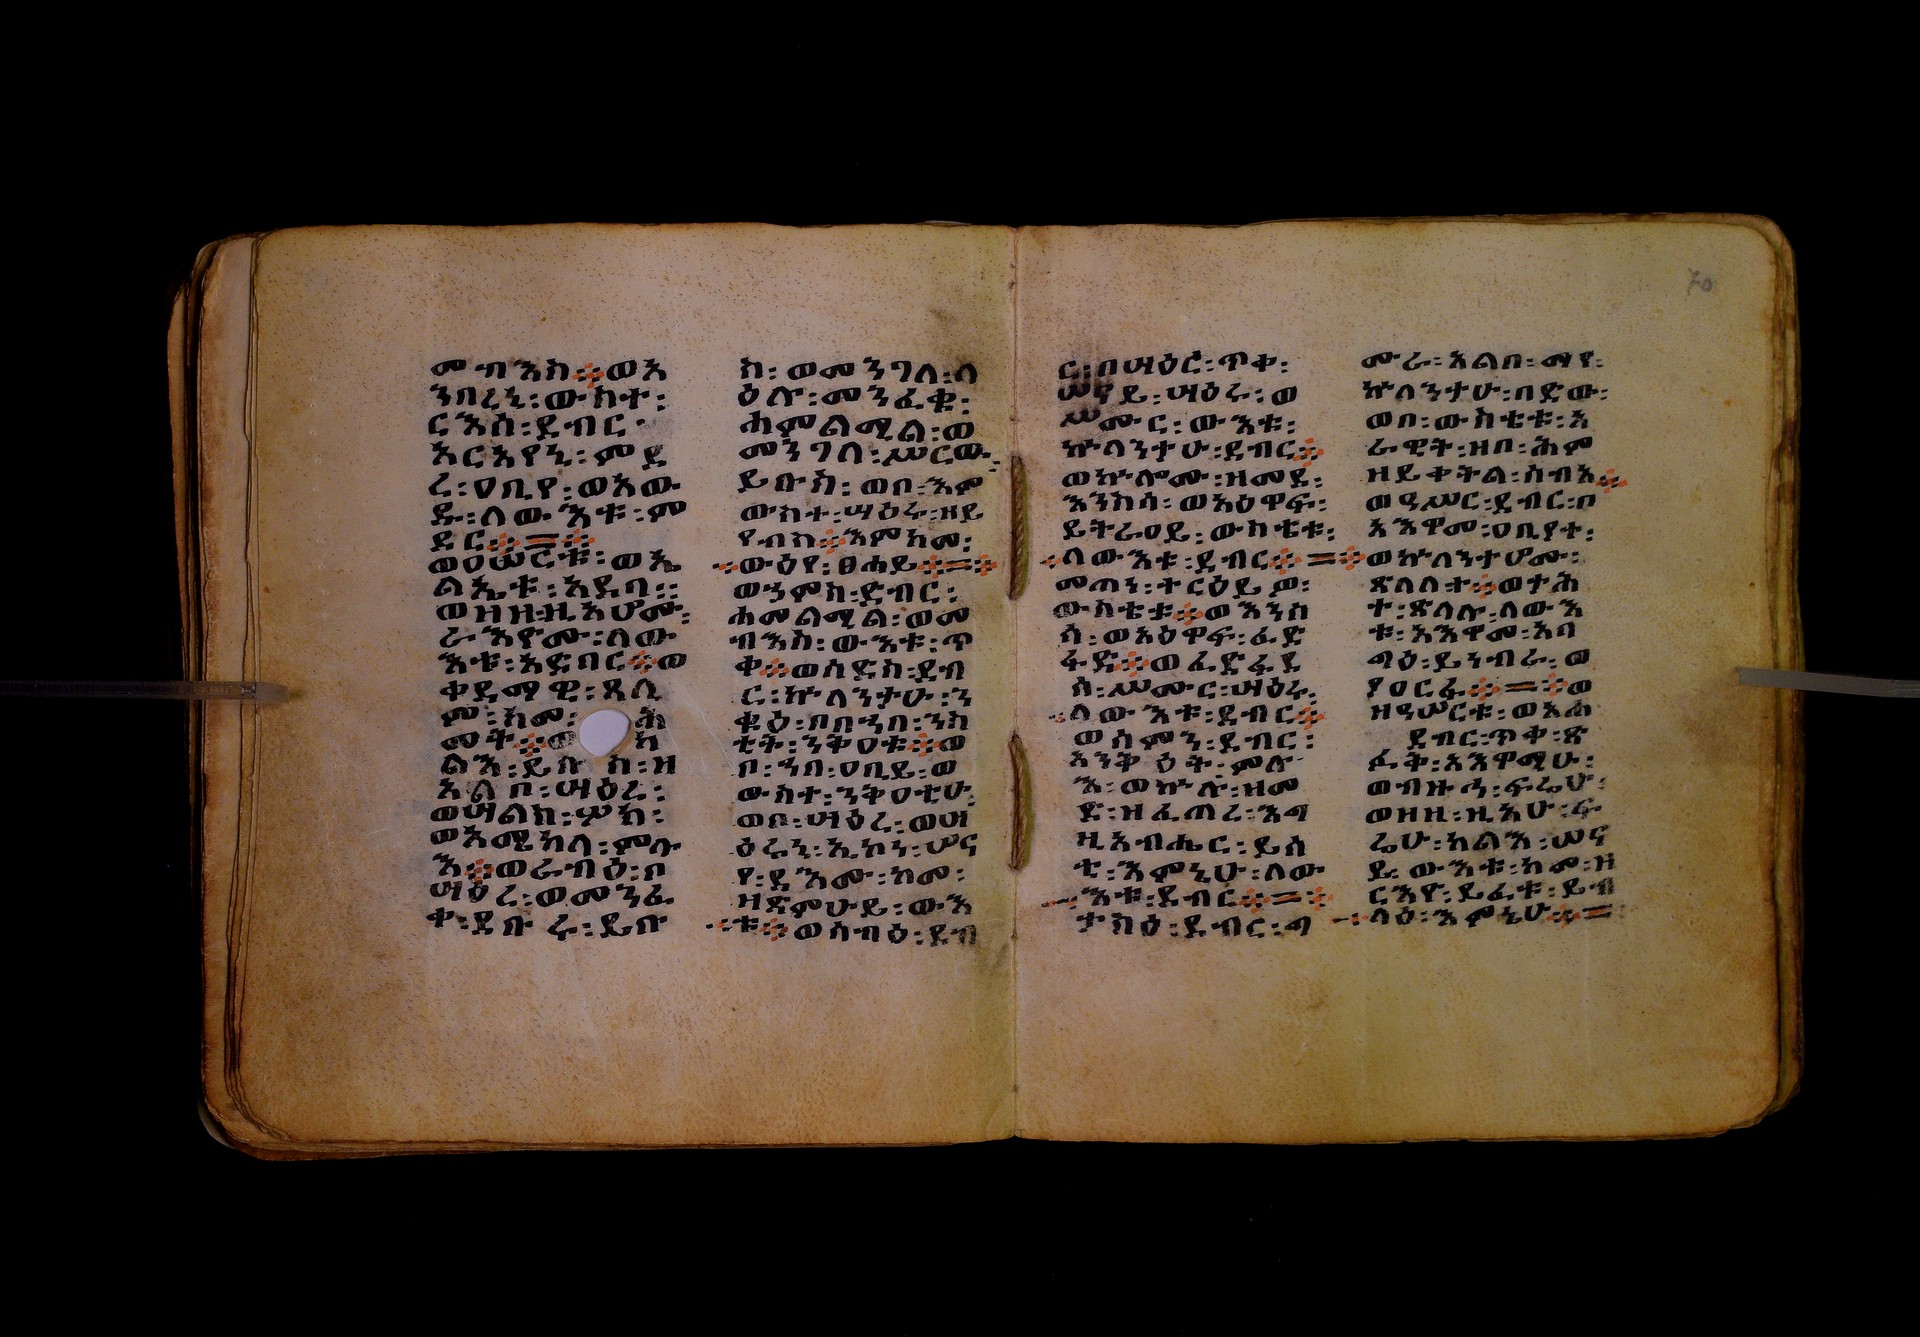 መብእከ፨ወእ
ንበረኒ፡ውስተ፡
ርእሰ፡ደብር
እርእየኒ፡ምድ
ረ፡ዐቢየ፡ወእው
ዱ፡ለውእቱ፡ም
ድር፨=፨
ወዐሠርቱ፡ወእ
ልኤቱ፡አደባ፡፡
ወዘዘዚአሆሙ፡
ራእዮሙ፡ለው
እቱ፡አድባር፨ወ
ቀደማዊ፡ጸሊ
ም፡ከመ፡ሕ
መት፨ወካ
ልእ፡ይቡስ፡ዘ
እልቦ፡ሣዕረ፡
ወሣልስ፡ሦክ፡
ወአሜከላ፡ምሉ
እ፨ወራብዕ፡በ
ሣዕረ፡ወመንፈ
ቀ፡ደቡረ፡ይቡ
ስ፡ወመንገለ፡ላ
ዕሉ፡መንፈቁ፡
ሐምልሚል፡ወ
መንገለ፡ሥርው፡
ይቡስ፡ወበ፡እም
ውስተ፡ሣዕሩ፡ዘይ
የብስ፨እምከመ፡
ውዕየ፡ፀሐይ፨=፨
ወኀምስ፡ድብር፡
ሐመልሚል፡ወመ
ብእስ፡ውእቱ፡ጥ
ቀ፨ወሰድስ፡ደብ
ር፡ኵለንታሁ፡ን
ቁዕ፡በበኀበ፡ንስ
ቲት፡ንቅዐቱ፨ወ
ቦ፡ኀበ፡ዐቢይ፡ወ
ውስተ፡ንቅዐቲሁ፡
ወቦ፡ሣዕረ፡ወሣ
ዕሩኒ፡ኢኮነ፡ሠና
የ፡ደእሙ፡ከመ፡
ዘጸምሁይ፡ውእ
ቱ፨ወሰብዕ፡ደብ
ር፡በሣዕር፡ጥቀ፡
ሠናይ፡ሣዕሩ፡ወ
ሥሙር፡ውእቱ፡
ኵለንታሁ፡ደብር፨
ወኵሎሙ፡ዘመደ፡
እንስሳ፡ወአዕዋፍ፡
ይትራዐይ፡ውስቴቱ፡
ለውእቱ፡ደብር፨=፨
መጠነ፡ተርዕይዎ፡
ውስቴቱ፨ወእንስ
ሳ፡ወአዕዋፍ፡ፈድ
ፋድ፨ወፈድፋደ
ሰ፡ሥሙር፡ሣዕሩ፡
ለውእቱ፡ደብር፨
ወሰምን፡ደብር፡
እንቅዕት፡ምሉ
እ፡ወኵሉ፡ዘመ
ድ፡ዘፈጠረ፡እግ
ዚእብሔር፡ይሰ
ቲ፡እምኒሁ፡ለው
እቱ፡ደብር፨=፨
ታስዕ፡ደብር፡ግ
ሙራ፡አልቦ፡ማየ፡
ኵለንታሁ፡በድው፡
ወበ፡ውስቴቱ፡አ
ራዊት፡ዘበ፡ሕም
ዘይቀትል፡ሰብእ፨
ወዓሥር፡ደብር፡ቦ
እእዋመ፡ዐቢየተ፡
ወኵለንታሆሙ፡
ጽለለት፨ወታሕ
ተ፡ጽላሉ፡ለውእ
ቱ፡እእዋመ፡አባ
ግዕ፡ይነብራ፡ወ
የዐርፋ፨=፨ወ
ዘዓሠርቱ፡ወአሐ
ደብር፡ጥቀ፡ጽ
ፈቅ፡እእዋሚሁ፡
ወብዙኅ፡ፍሬሁ፡
ወዘዘ፡ዚአሁ፡ፍ
ሬሁ፡ከልእ፡ሠና
ይ፡ውእቱ፡ከመ፡ዘ
ርእየ፡ይፈቱ፡ይብ
ላዕ፡እምኒሁ፨=
70